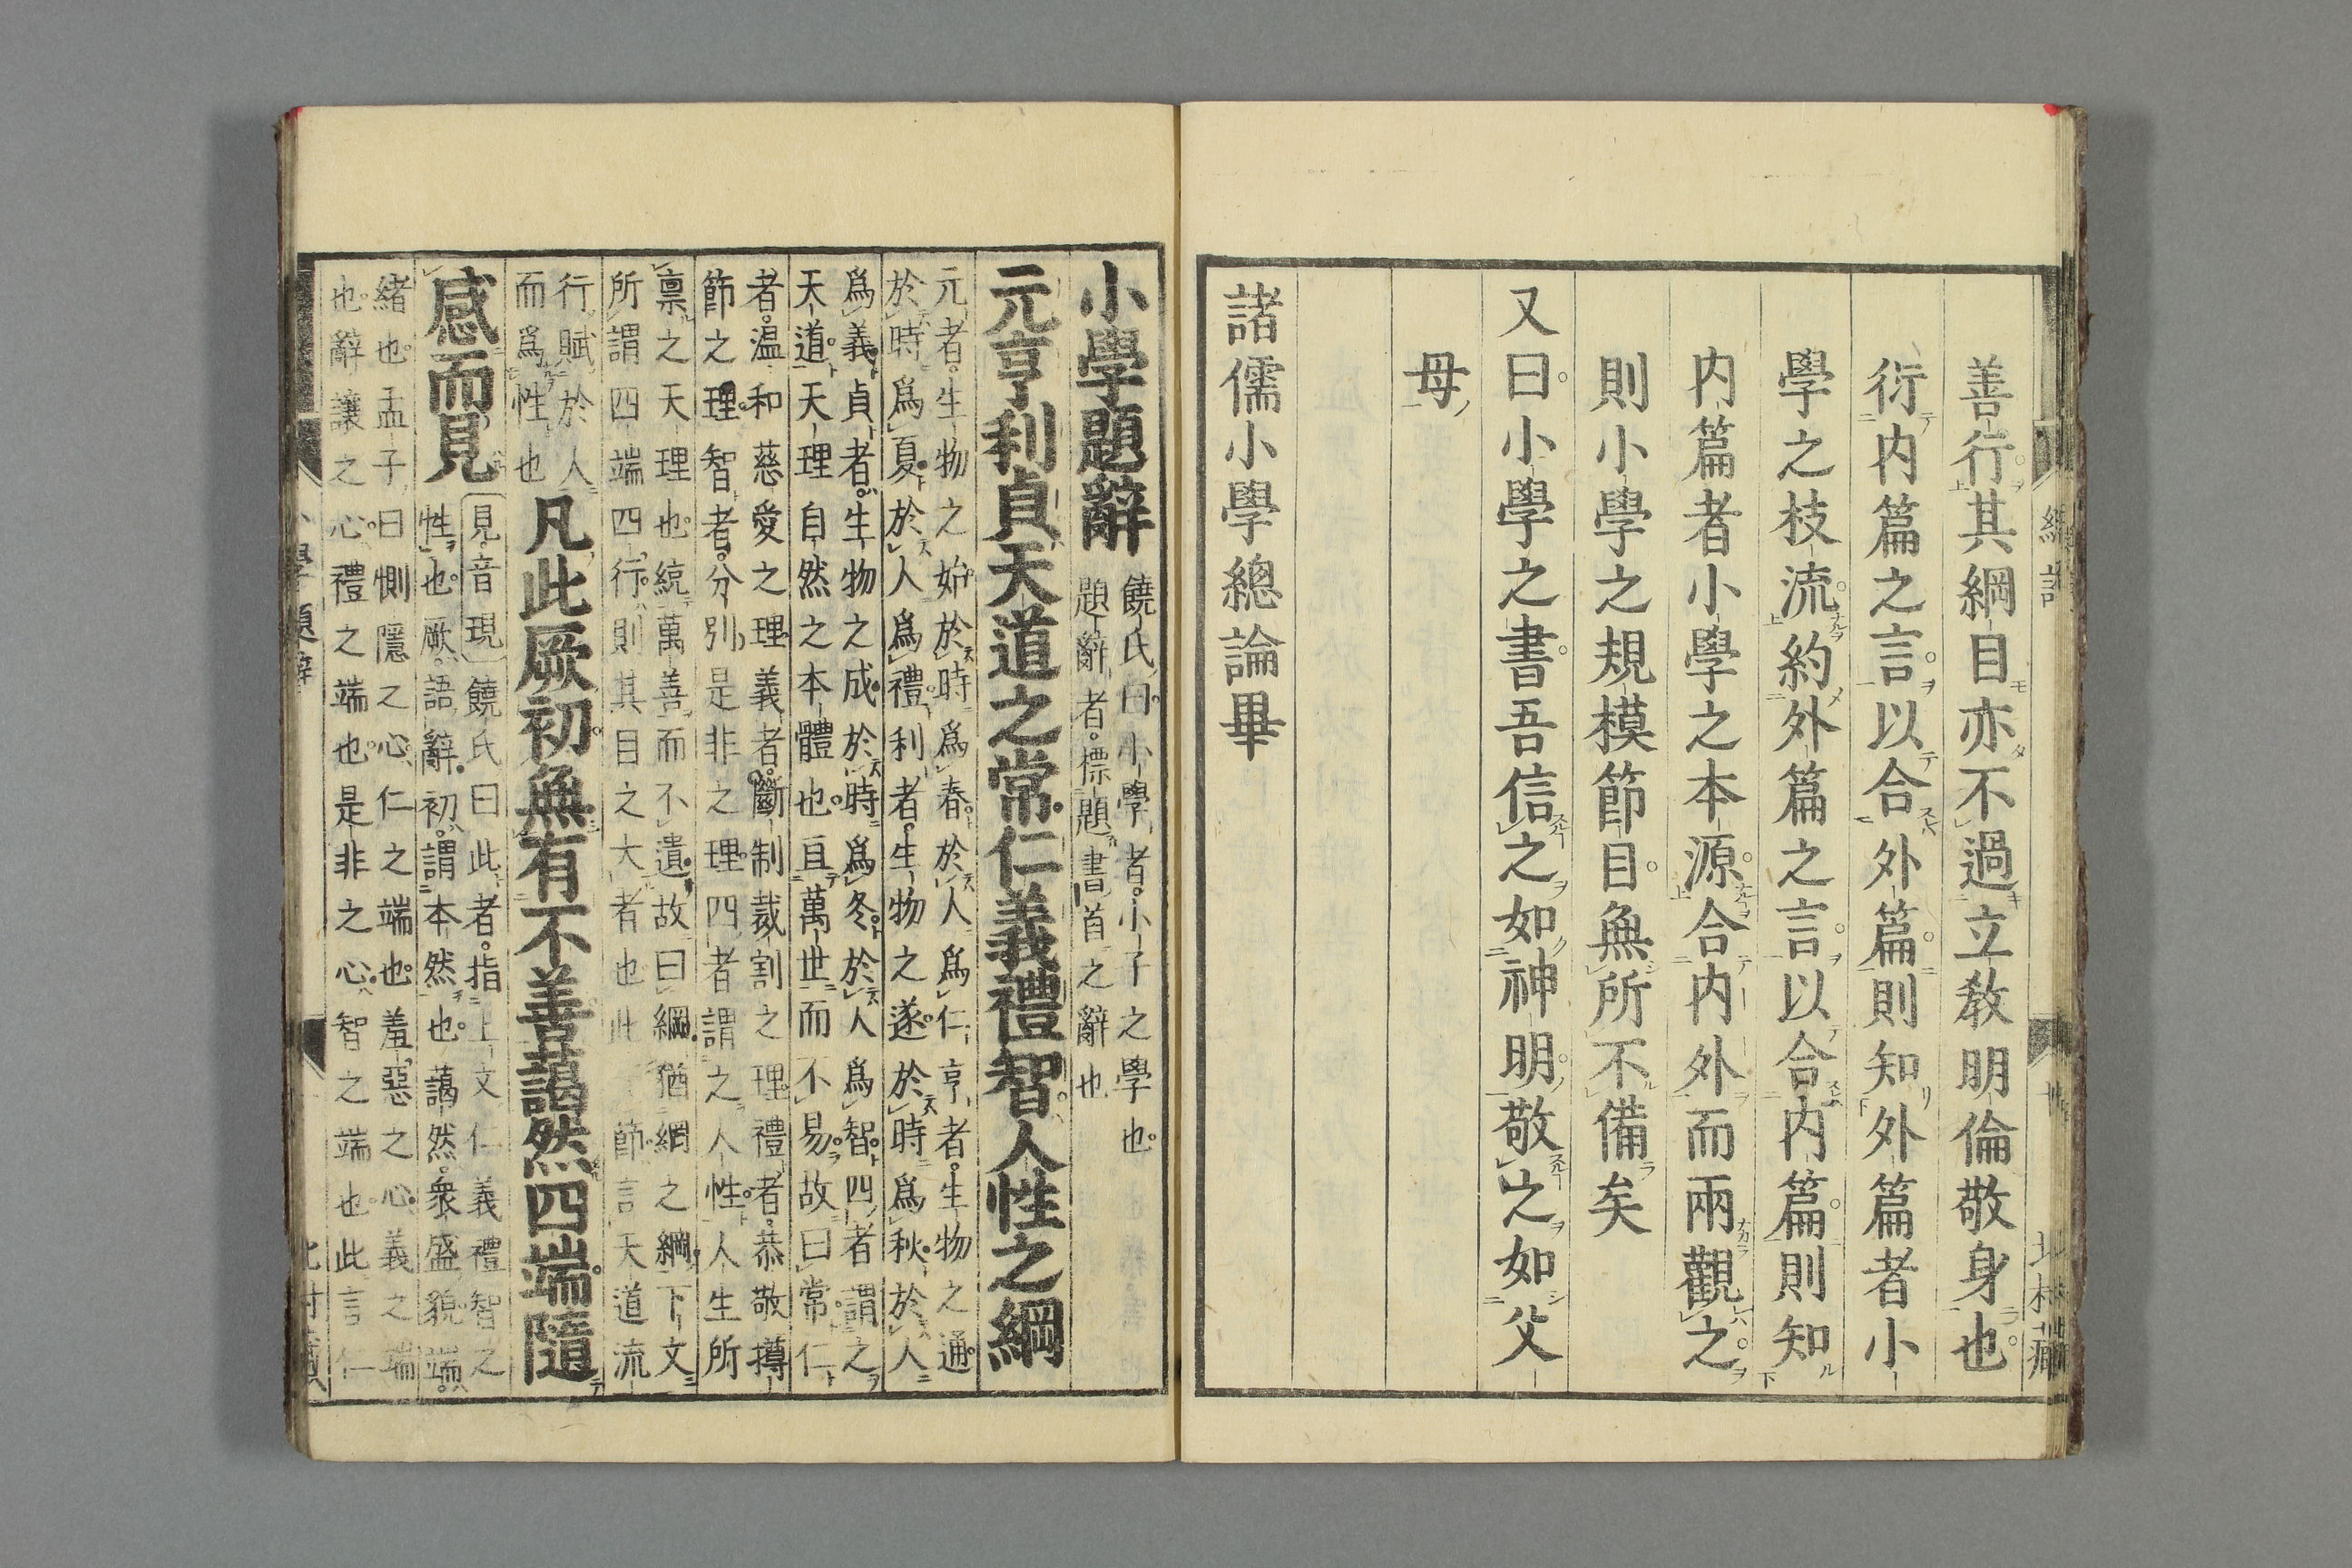 善行其綱目亦不過立教明倫敬身也
衍内篇之言以合外篇則知外篇者小
學之枝流約外篇之言以合内篇則知
内篇者小學之本源合内外而兩觀之
則小學之規模節目無所不備矣
又曰小學之書吾信之如神明敬之如父
母
諸儒小學總論畢
小學題辭
饒氏曰小學者小子之學也
題辭者標題書首之辭也
元亨利貞天道之常仁義禮智人性之綱
元者生物之始於時爲春於人爲仁亨者生物之通
於時爲夏於人爲禮利者生物之遂於時爲秋於人
爲義貞者生物之成於時爲冬於人爲智四者謂之
天道天理自然之本體也亘萬世而不易故曰常仁
者溫和慈愛之理義者斷制裁割之理禮者恭敬撙
節之理智者分別是非之理四者謂之人性人生所
禀之天理也統萬善而不遺故曰綱猶網之綱下文
所謂四端四行則其目之大者也此節言天道流
行賦於人
而爲性也
凡此厥初無有不善藹然四端隨
感而見
見音現饒氏曰此者指上文仁義禮智之
性也厥語辭初謂本然也藹然衆盛貌端
緒也孟子曰惻隱之心仁之端也羞惡之心義之端
也辭讓之心禮之端也是非之心智之端也此言仁
小學題辭